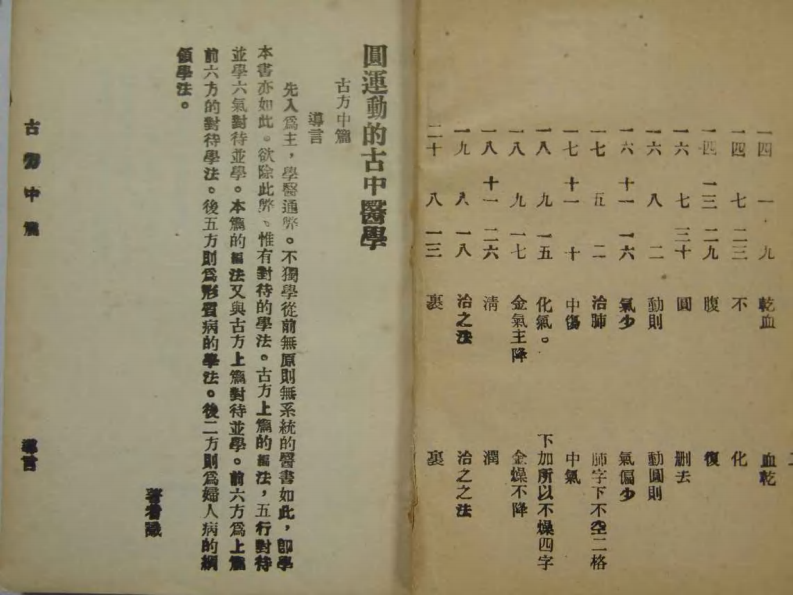 一四 一 九 乾血 血乾
一四 七 二三 不 化
一四 一三 二九 腹 復
一六 七 三十 圓 刪去
一六 八 二 動則 動圓則
一六 十一 一六 氣少 氣偏少
一七 五 二 治肺 肺字下不空二格
一七 十一 十 中傷 中氣
一八 九 一五 化氣。 下加所以不燥四字
一八 九 一七 金氣主降 金燥不降
一八 十一 二六 清 潤
一九 八 一八 治之法 治之之法
二十 八 一三 裏 裏
圓運動的古中醫學
古方中篇
導言
先入爲主,學醫通弊。不獨學從前無原則無系統的醫書如此,即學
本書亦如此。欲除此弊、惟有對待的學法。古方上篇的編法,五行對待
並學六氣對待並學。本篇的編法又與古方上篇對待並學。前六方爲上篇
前六方的對待學法。後五方則爲形質病的學法。後二方則爲婦人病的綱
領學法。
著者識
古方中篇 導言